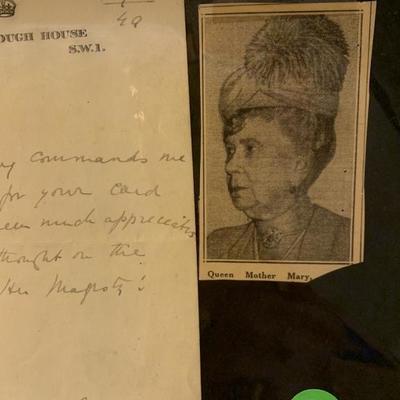 49
OUGH HOUSE
S.W.1.
commands me
for your card
been much appreciated
thought on the
Her Majesty's
Queen Mother Mary.